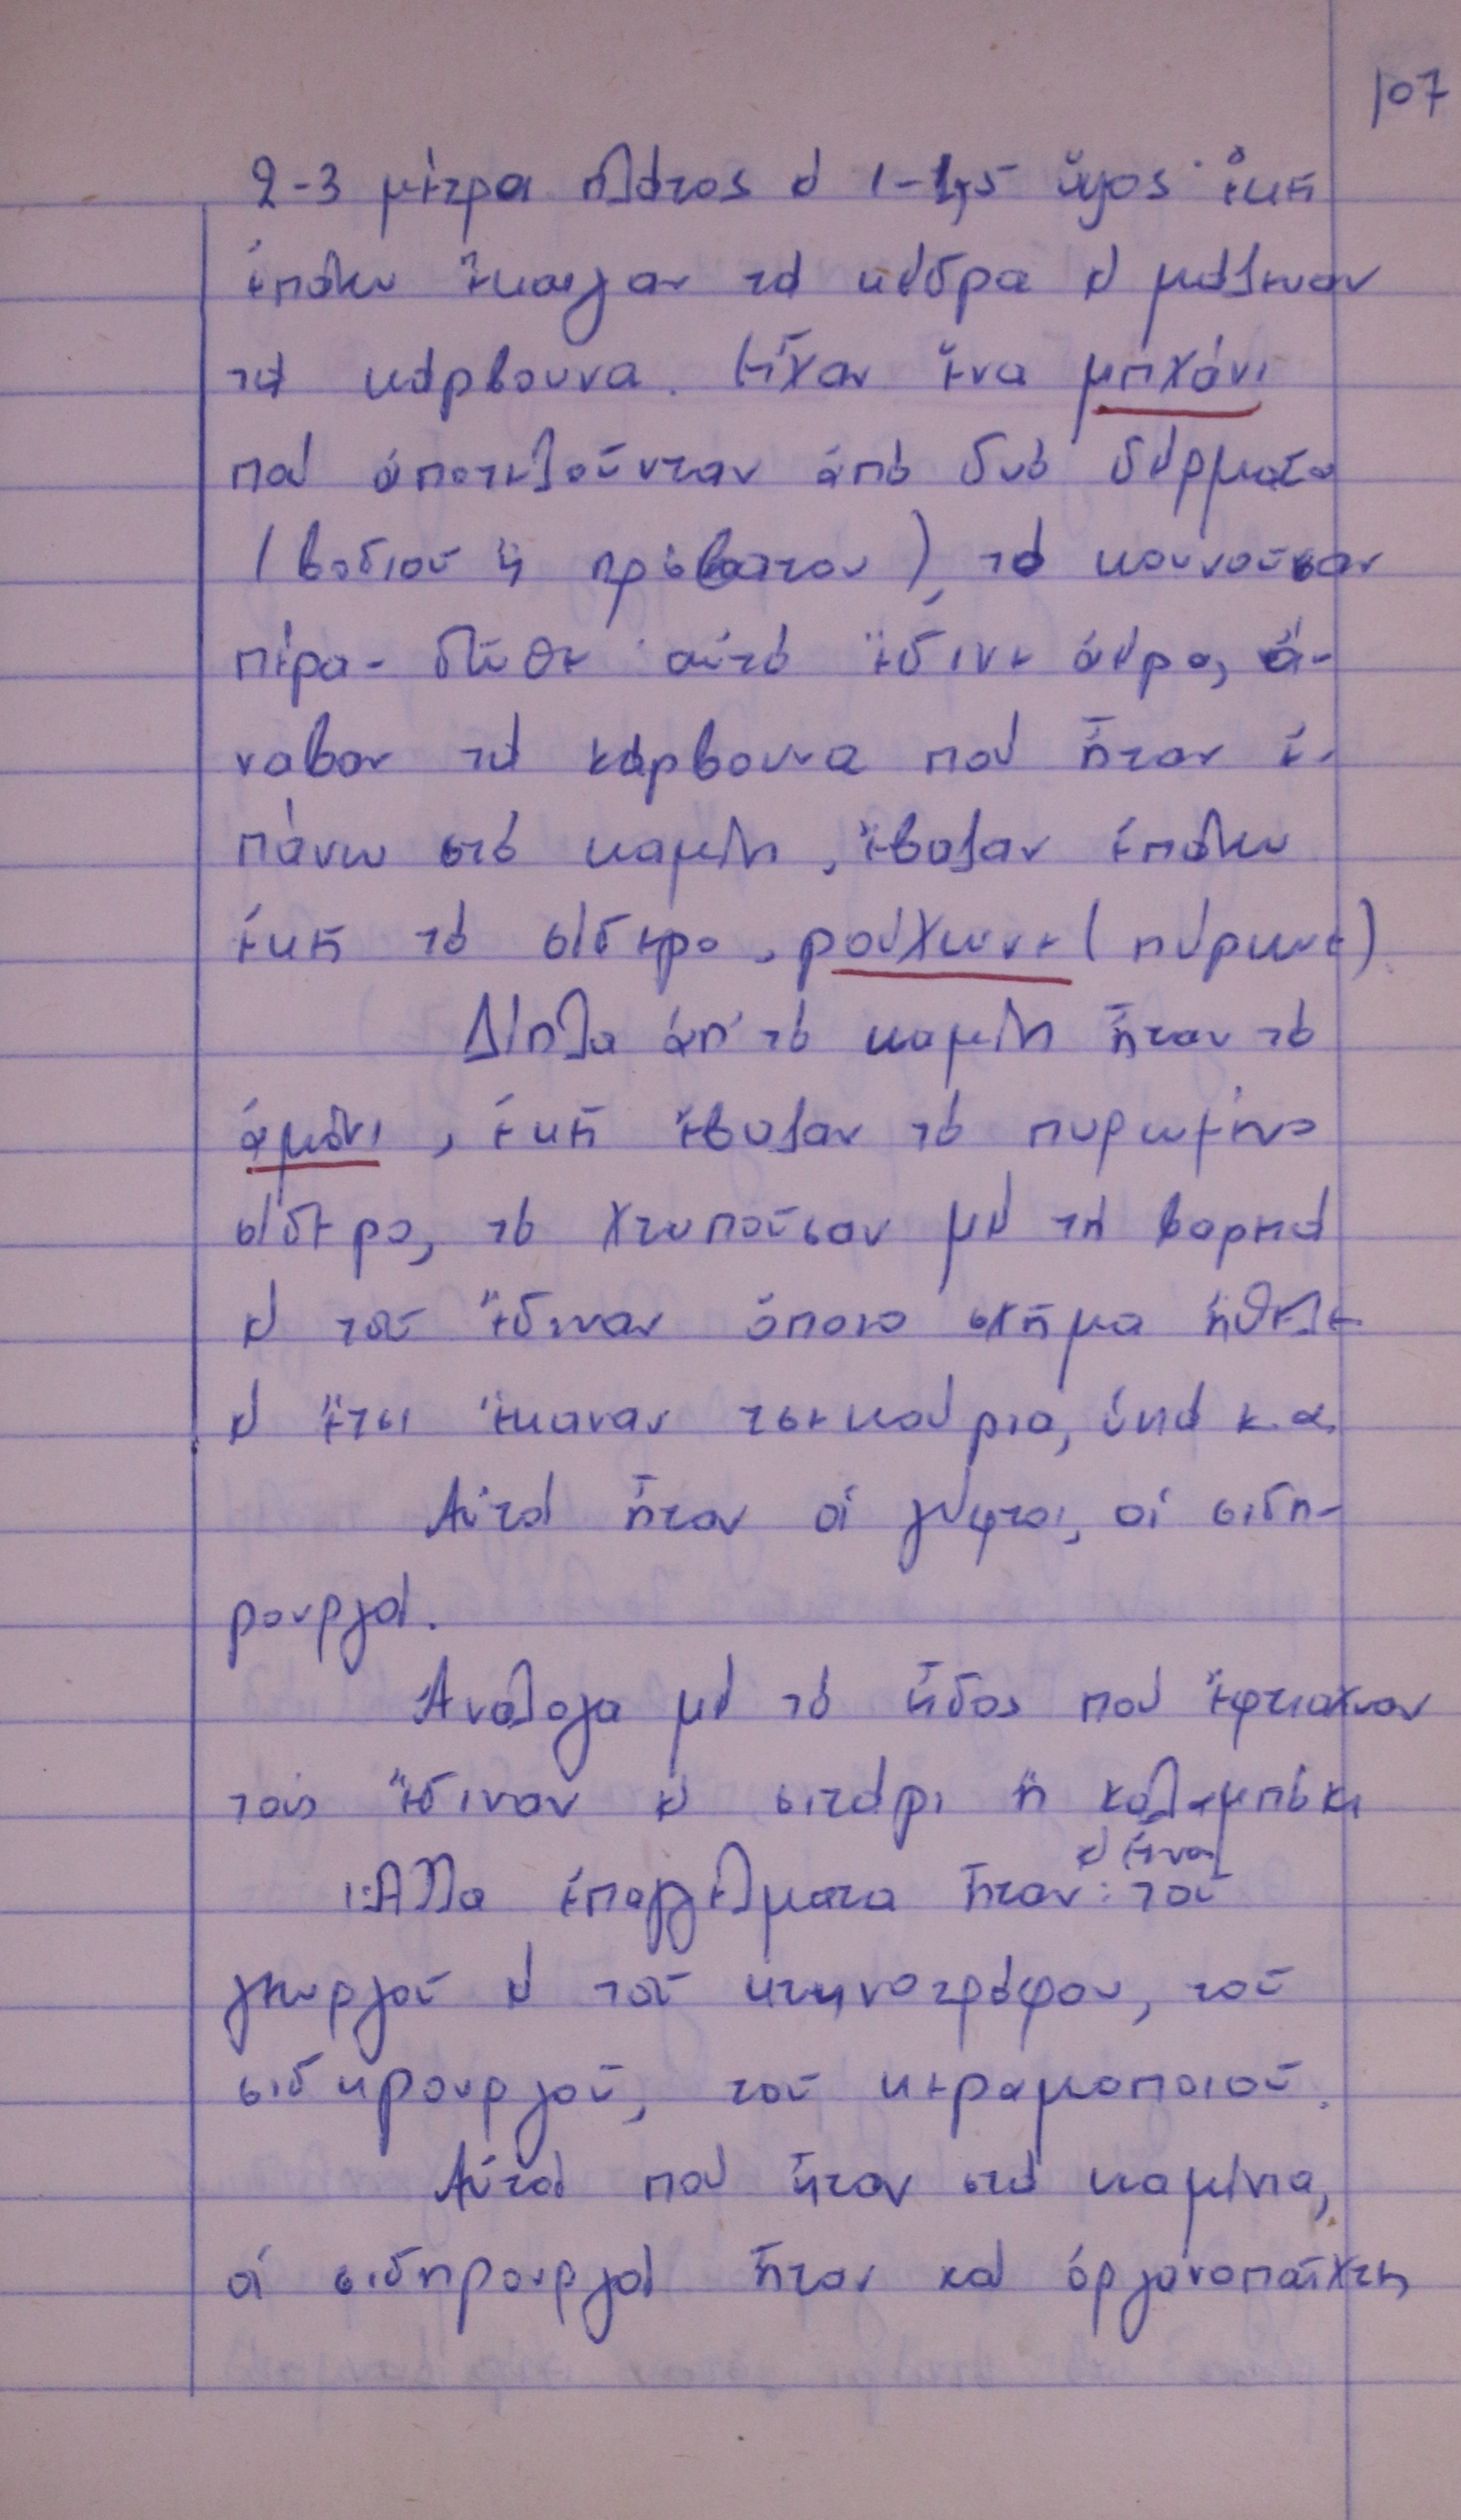 107
2-3 μέτρα πλάτος κ' 1-1,5 ὕψος· ἐκεῖ
ἐπάνω ἔκαιγαν τά κέδρα κ' μάζευαν
τά κάρβουνα. Εἶχαν ἕνα μηχάνι
πού ἀποτελοῦνταν ἀπό δυό δέρματα
(βοδιοῦ ἤ πρόβατου), τό κουνοῦσαν
πέρα- δῶθε αὐτό ἔδινε ἀέρα, ἄ-
ναβαν τά κάρβουνα πού ἦταν ἐ-
πάνω στό καμίνι, ἔβαζαν ἐπάνω
ἐκεῖ τό σίδερο, ρούχωνε (πύρωνε)
Δίπλα ἀπ' τό καμίνι ἦταν τό
ἀμόνι, ἐκεῖ ἔβαζαν τό πυρωμένο
σίδερο, τό χτυποῦσαν μέ τή βαριά
κ' τοῦ ἔδιναν ὅποιο σχῆμα ἤθελε
κ' ἔτσι ἔκαναν τσεκούρια, ὑνιά κ.α.
Αὐτοί ἦταν οἱ γύφτοι, οἱ σιδη-
ρουργοί.
Ἀνάλογα μέ τό εἶδος πού ἔφτιαχναν
τούς ἔδιναν κ' σιτάρι ἤ καλαμπόκι
κ' εἶναι
Ἄλλα ἐπαγγέλματα ἦταν: τοῦ
γεωργοῦ κ' τοῦ κτηνοτρόφου, τοῦ
σιδηρουργοῦ, τοῦ κεραμοποιοῦ.
Αὐτοί πού ἦταν στά καμίνια,
οἱ σιδηρουργοί ἦταν καί ὀργανοπαῖχτες